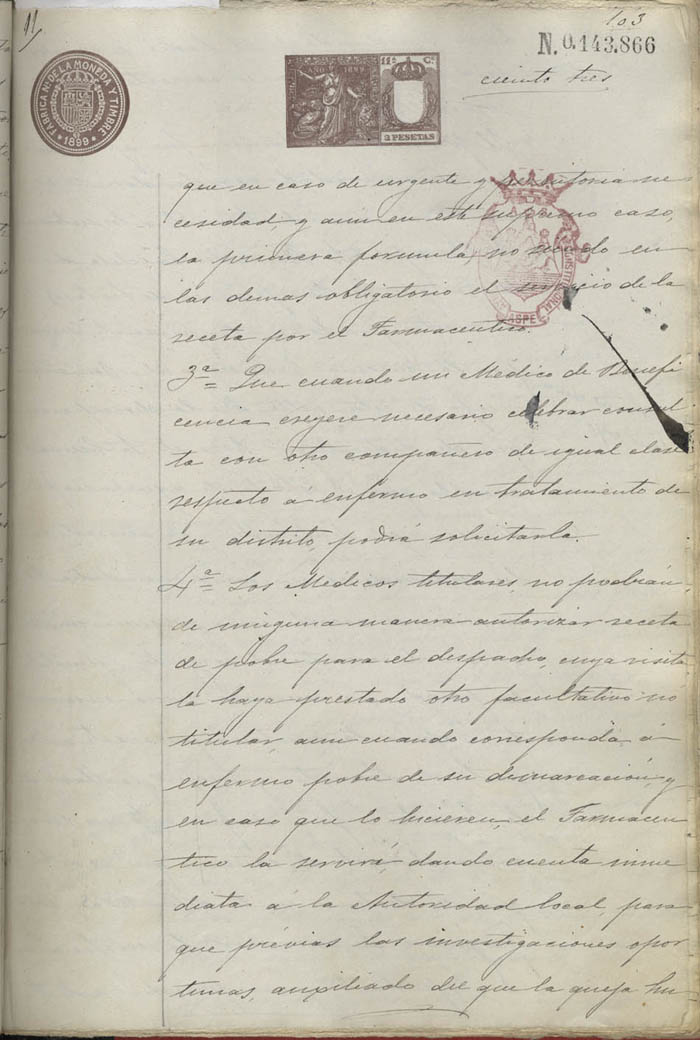 11
103
N. 0.143.866
ciento tres
FABRICA NAL DE LA MONEDA Y TIMBRE
1899
AÑO 1899
11ª C.
2 PESETAS
ASPE
que en caso de urgente y perentoria ne
cesidad, y aun en este supremo caso,
la primera formula, no siendo en
las demas obligatorio el servicio de la
receta por el Farmaceutico.
3ª = Que cuando un Médico de Benefi
cencia creyere necesario celebrar consul
ta con otro compañero de igual clase
respecto á enfermo en tratamiento de
su distrito, podrá solicitarla.
4ª = Los Medicos titulares, no podrán,
de ninguna manera autorizar receta
de pobre para el despacho, cuya visita
la haya prestado otro facultativo no
titular, aun cuando corresponda á
enfermo pobre de su demarcación, y
en caso que lo hicieren, el Farmaceu
tico la servirá, dando cuenta inme
diata á la Autoridad local, para
que prévias las investigaciones opor
tunas, auxiliado del que la queja hu